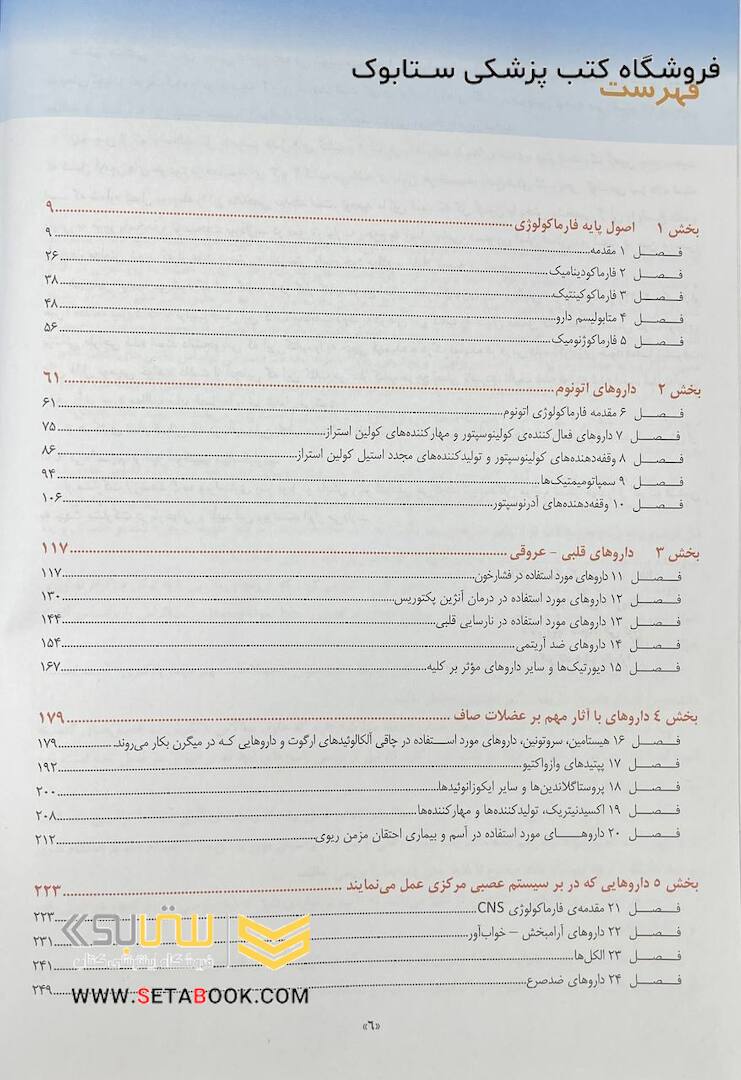 فروشگاه کتب پزشکی ستابوک
فهرست
بخش ۱ اصول پایه فارماکولوژی ۹
فصل ۱ مقدمه ۹
فصل ۲ فارماکودینامیک ۲۶
فصل ۳ فارماکوکینتیک ۳۸
فصل ۴ متابولیسم دارو ۴۸
فصل ۵ فارماکوژنومیک ۵۶
بخش ۲ داروهای اتونوم ۶۱
فصل ۶ مقدمه فارماکولوژی اتونوم ۶۱
فصل ۷ داروهای فعال‌کننده‌ی کولینوسپتور و مهارکننده‌های کولین استراز ۷۵
فصل ۸ وقفه‌دهنده‌های کولینوسپتور و تولیدکننده‌های مجدد استیل کولین استراز ۸۶
فصل ۹ سمپاتومیمتیک‌ها ۹۴
فصل ۱۰ وقفه‌دهنده‌های آدرنوسپتور ۱۰۶
بخش ۳ داروهای قلبی - عروقی ۱۱۷
فصل ۱۱ داروهای مورد استفاده در فشارخون ۱۱۷
فصل ۱۲ داروهای مورد استفاده در درمان آنژین پکتوریس ۱۳۰
فصل ۱۳ داروهای مورد استفاده در نارسایی قلبی ۱۴۴
فصل ۱۴ داروهای ضد آریتمی ۱۵۴
فصل ۱۵ دیورتیک‌ها و سایر داروهای مؤثر بر کلیه ۱۶۷
بخش ۴ داروهای با آثار مهم بر عضلات صاف ۱۷۹
فصل ۱۶ هیستامین، سروتونین، داروهای مورد استفاده در چاقی آلکالوئیدهای ارگوت و داروهایی که در میگرن بکار می‌روند ۱۷۹
فصل ۱۷ پپتیدهای وازواکتیو ۱۹۲
فصل ۱۸ پروستاگلاندین‌ها و سایر ایکوزانوئیدها ۲۰۰
فصل ۱۹ اکسیدنیتریک، تولیدکننده‌ها و مهارکننده‌ها ۲۰۸
فصل ۲۰ داروهای مورد استفاده در آسم و بیماری احتقان مزمن ریوی ۲۱۲
بخش ۵ داروهایی که در بر سیستم عصبی مرکزی عمل می‌نمایند ۲۲۳
فصل ۲۱ مقدمه‌ی فارماکولوژی CNS ۲۲۳
فصل ۲۲ داروهای آرامبخش - خواب‌آور ۲۳۱
فصل ۲۳ الکل‌ها ۲۴۱
فصل ۲۴ داروهای ضدصرع ۲۴۹
ستابوک
فروشگاه اینترنتی کتاب
WWW.SETABOOK.COM
«۶»